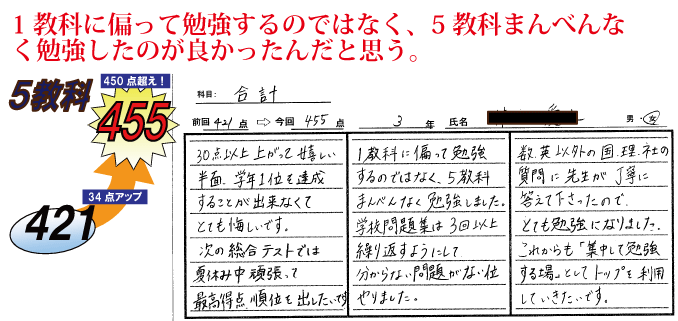 1教科に偏って勉強するのではなく、5教科まんべんな
く勉強したのが良かったんだと思う。
5教科
450点超え！
455
34点アップ
421
科目: 合計
前回 421 点 ⇨ 今回 455 点 3 年 氏名 男・女
30点以上上がって嬉しい
半面、学年1位を達成
することが出来なくて
とても悔しいです。
次の総合テストでは
夏休み中頑張って
最高得点、順位を出したいです
1教科に偏って勉強
するのではなく、5教科
まんべんなく勉強しました。
学校問題集は3回以上
繰り返すようにして
分からない問題がない位
やりました。
数、英以外の国、理、社の
質問に先生が丁寧に
答えて下さったので、
とても勉強になりました。
これからも「集中して勉強
する場」としてトップを利用
していきたいです。